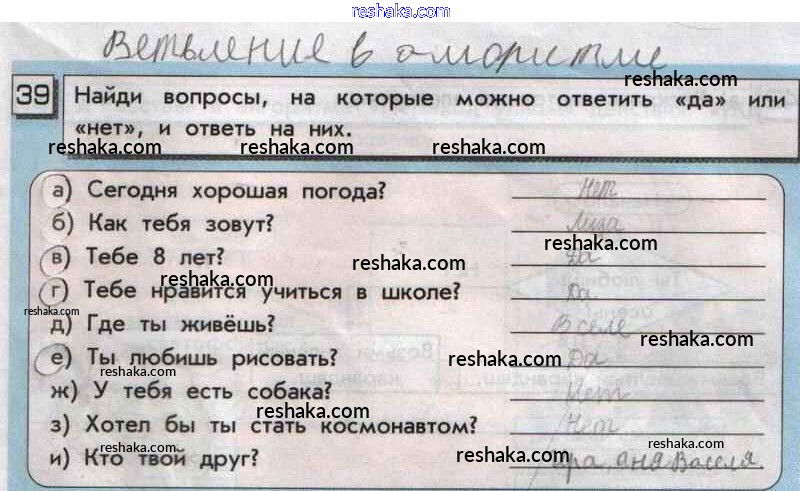 reshaka.com
Ветвление в
39 Найди вопросы, на которые можно ответить «да» или
«нет», и ответь на них.
reshaka.com
reshaka.com reshaka.com reshaka.com
а) Сегодня хорошая погода? Нет
reshaka.com
б) Как тебя зовут? Лиза
reshaka.com
в) Тебе 8 лет? Да
reshaka.com
г) Тебе нравится учиться в школе? Да
reshaka.com reshaka.com
reshaka.com
д) Где ты живёшь? В селе
reshaka.com
е) Ты любишь рисовать? Да
reshaka.com
ж) У тебя есть собака? Нет
reshaka.com
з) Хотел бы ты стать космонавтом? Нет
reshaka.com reshaka.com
и) Кто твой друг?
reshaka.com reshaka.com
reshaka.com